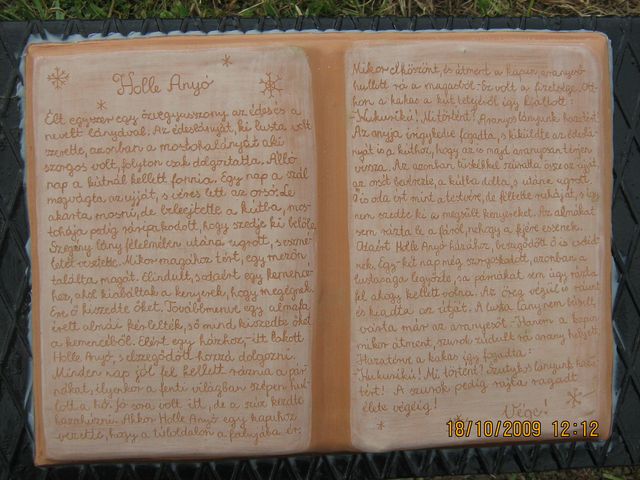 Holle Anyó
Élt egyszer egy özvegyasszony az édes és a
nevelt lányával. Az édeslányát, ki lusta volt
szerette, azonban a mostohalányát aki
szorgos volt, folyton csak dolgoztatta. Álló
nap a kútnál kellett fonnia. Egy nap a szál
megvágta az ujját, s véres lett az orsó. Le
akarta mosni, de beleejtette a kútba, mos-
tohája pedig ráripakodott, hogy szedje ki belőle.
Szegény lány félelmében utána ugrott, s eszmé-
letét vesztette. Mikor magához tért, egy mezőn
találta magát. Elindult, s odaért egy kemencé-
hez, ahol kiabáltak a kenyerek, hogy megégnek.
Erre ő kiszedte őket. Továbbmenve egy almafa
érett almái kérlelték, s ő mind kiszedte őket
a kemencéből. Elért egy házhoz, itt lakott
Holle Anyó, s elszegődött hozzá dolgozni.
Minden nap jól fel kellett ráznia a pár-
nákat, ilyenkor a fenti világban szépen hul-
lott a hó. Jó sora volt itt, de a szíve kezdte
hazahúzni. Akkor Holle Anyó egy kapuhoz
vezette, hogy a túloldalon a falujába ér.
Mikor elköszönt, és átment a kapun, aranyeső
hullott rá a magasból. Ez volt a fizetsége. Ott-
hon a kakas a kút tetejéről így kiáltott:
-Kukurikú! Mi történt? Aranyos lányunk hazatért!
Az anyja irigykedve fogadta, s kiküldte az édeslá-
nyát is a kúthoz, hogy az is majd aranyosan térjen
vissza. Az azonban tüskékkel szúratta össze az ujját,
az orsót bevérezte, a kútba dobta, s utána ugrott.
Ő is oda ért mint a testvére, de féltette ruháját, s így
nem szedte ki a megsült kenyereket. Az almákat
sem rázta le a fáról, nehogy a fejére essenek.
Odaért Holle Anyó házához, beszegődött ő is cseléd-
nek. Egy-két nap még szorgoskodott, azonban a
lustasága legyőzte, s a párnákat sem úgy rázta
fel ahogy kellett volna. Az öreg végül is ráunt
és kiadta az útját. A lusta lánynem búsult,
várta már az aranyesőt. Hanem a kapun
mikor átment, szurok zúdult rá arany helyett.
Hazatérve a kakas így fogadta:
-Kukurikú! Mi történt? Szutykos lányunk haza-
tért! A szurok pedig rajta ragadt
élete végéig!
Vége!
18/10/2009 12:12